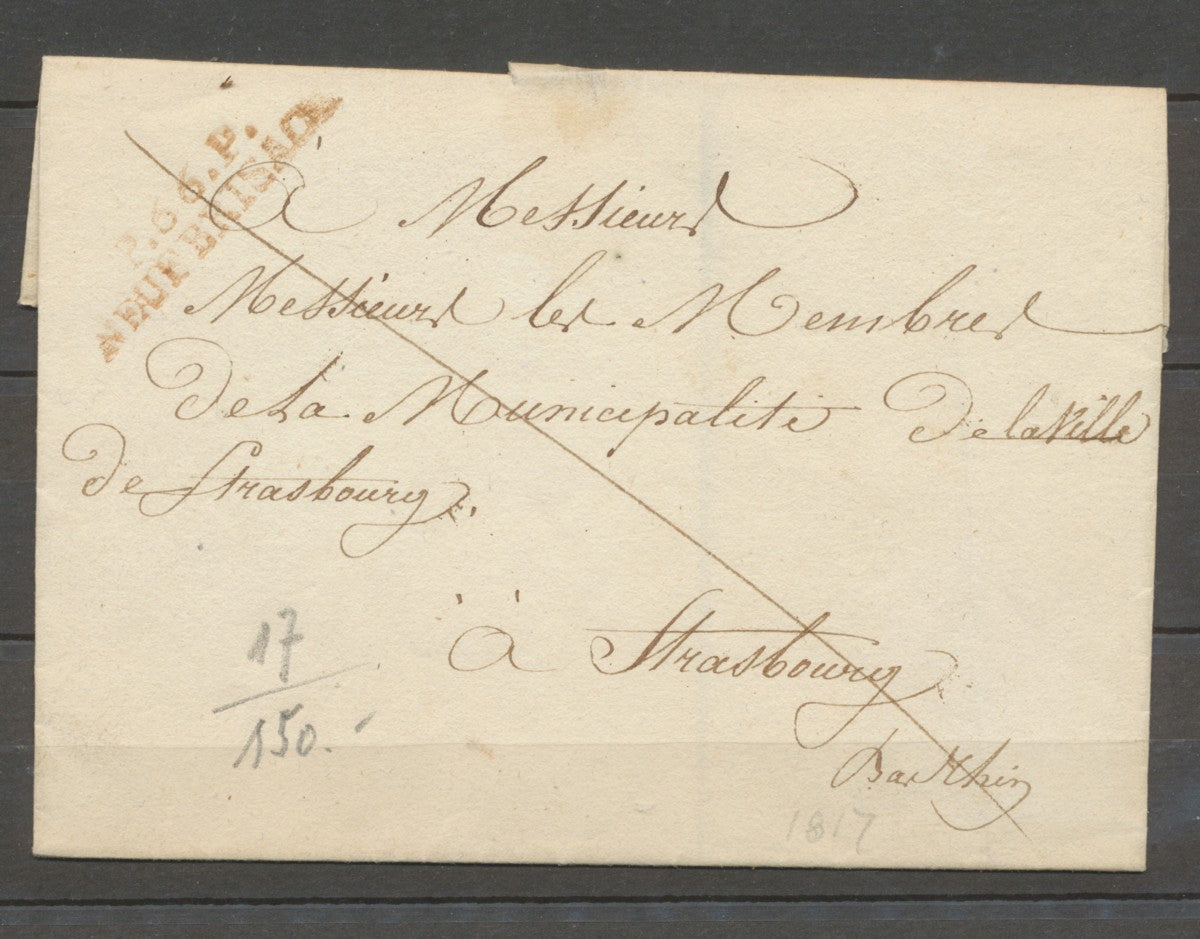 P.66.P.
NEUF BRISACK
à Messieurs
Messieurs les Membres
de la Municipalité de la Ville
de Strasbourg.
à Strasbourg
Bas Rhin
17
150.-
1817